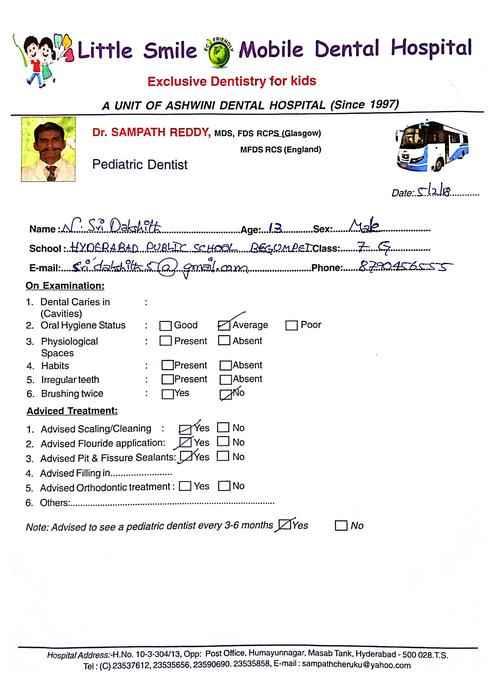 Little Smile ECO FRIENDLY Mobile Dental Hospital
Exclusive Dentistry for kids
A UNIT OF ASHWINI DENTAL HOSPITAL (Since 1997)
Dr. SAMPATH REDDY, MDS, FDS RCPS (Glasgow)
MFDS RCS (England)
Pediatric Dentist
Date: 5/2/18
Name: N. Sri Dakshith Age: 13 Sex: Male
School: HYDERABAD PUBLIC SCHOOL BEGUMPET Class: 7 G
E-mail: sri dakshith.5@gmail.com Phone: 8790456555
On Examination:
1. Dental Caries in :
(Cavities)
2. Oral Hygiene Status : Good Average Poor
3. Physiological : Present Absent
Spaces
4. Habits : Present Absent
5. Irregular teeth : Present Absent
6. Brushing twice : Yes No
Adviced Treatment:
1. Advised Scaling/Cleaning : Yes No
2. Advised Flouride application: Yes No
3. Advised Pit & Fissure Sealants: Yes No
4. Advised Filling in....................
5. Advised Orthodontic treatment : Yes No
6. Others:..................................................
Note: Advised to see a pediatric dentist every 3-6 months Yes No
Hospital Address:-H.No. 10-3-304/13, Opp: Post Office, Humayunnagar, Masab Tank, Hyderabad - 500 028.T.S.
Tel : (C) 23537612, 23535656, 23590690. 23535858, E-mail : sampathcheruku@yahoo.com